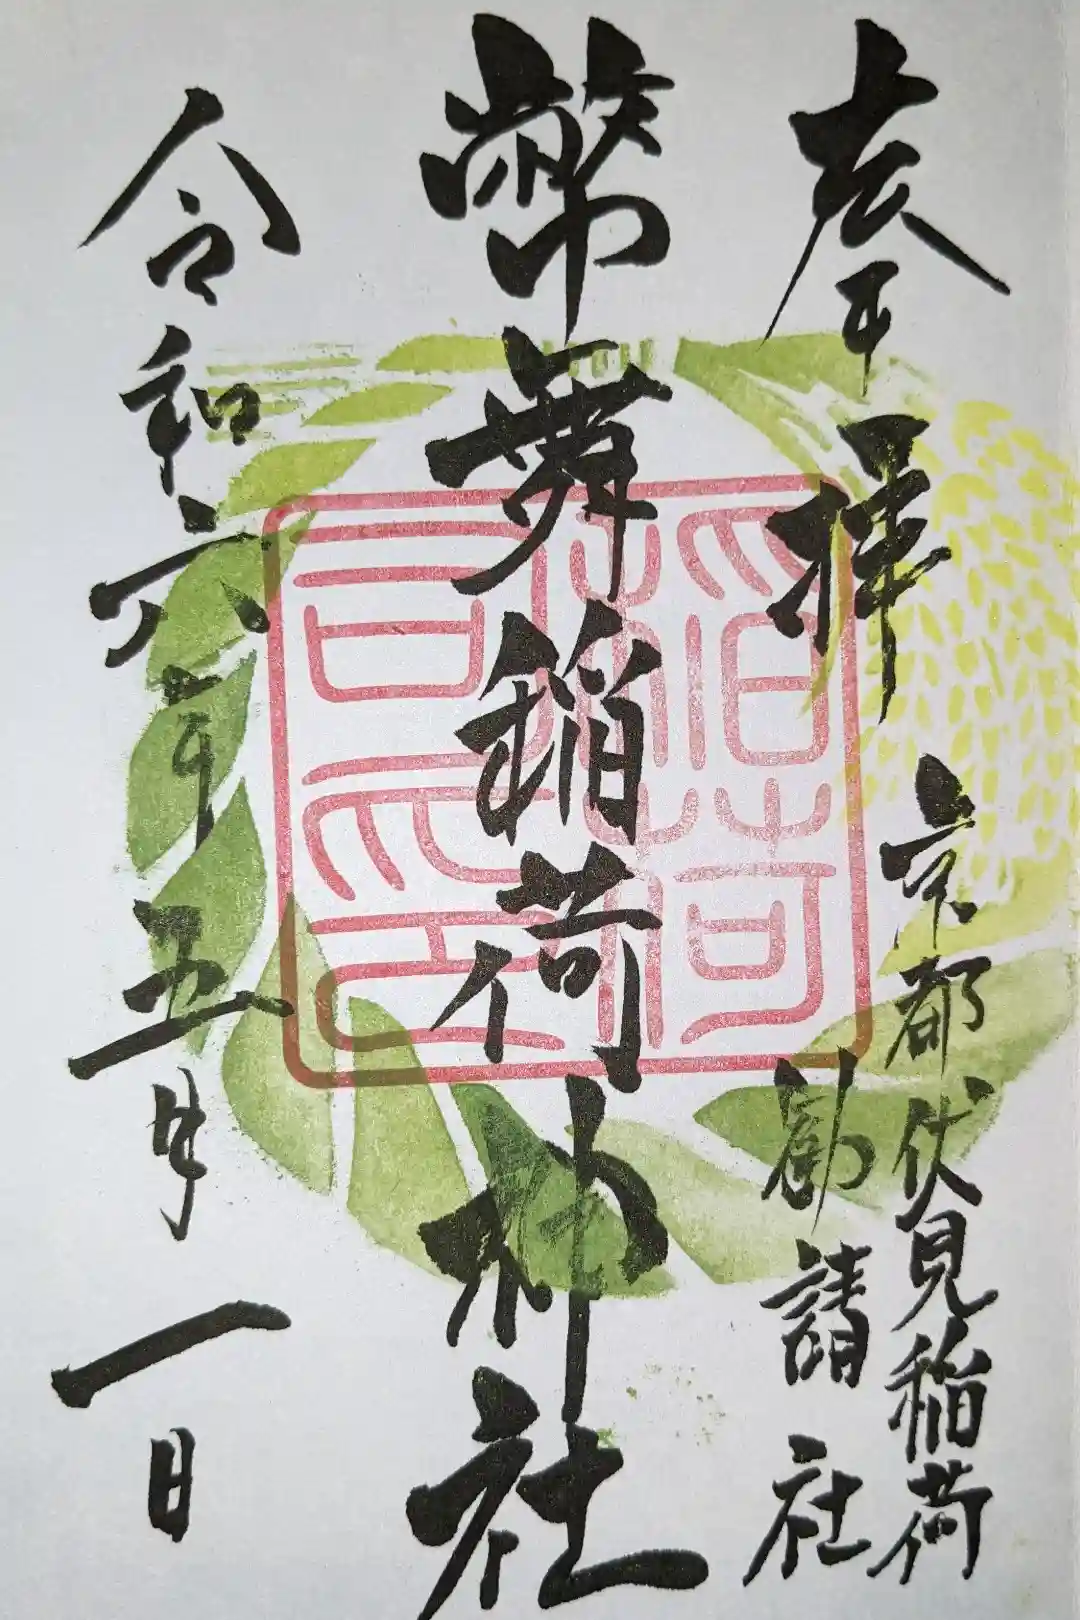 奉拝
京都伏見稲荷
勧請社
幣舞稲荷神社
令和六年五月一日